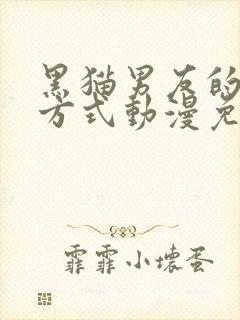 黑猫男友的
方式動漫免
霏霏小壞蛋